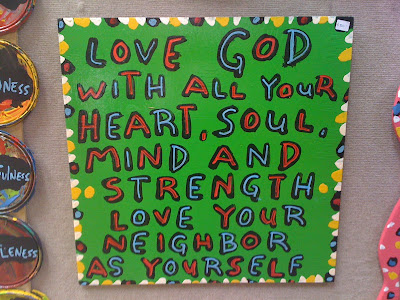 LOVE GOD
WITH ALL YOUR
HEART, SOUL,
MIND AND
STRENGTH
LOVE YOUR
NEIGHBOR
AS YOURSELF